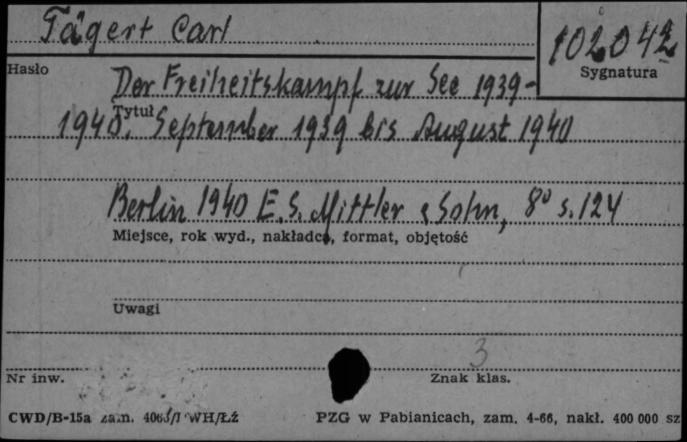 Tägert Carl
102042
Hasło
Sygnatura
Der Freiheitskampf zur See 1939-
Tytuł
1940. September 1939 bis August 1940
Berlin 1940 E. S. Mittler & Sohn, 8° s. 124
Miejsce, rok wyd., nakładca, format, objętość
Uwagi
3
Nr inw.
Znak klas.
CWD/B-15a zam. 4063/I WH/Łź
PZG w Pabianicach, zam. 4-66, nakł. 400 000 sz